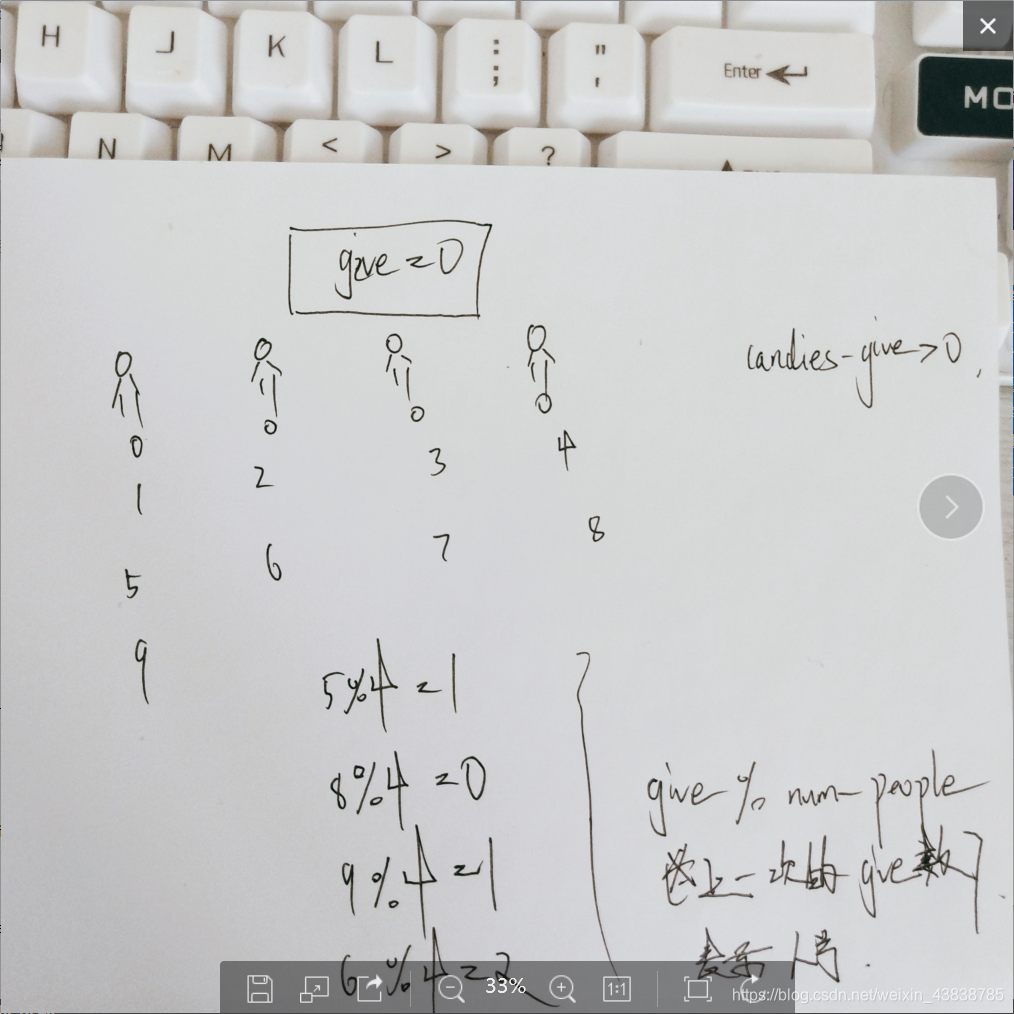 H J K L : ; " ' Enter
MO
N M < > ?
give=0
candies-give>0,
0
1 2 3 4
5 6 7 8
9
5%4=1
8%4=0
9%4=1
6%4=2
give % num-people
上一次的give数
表示人号.
33%
1:1
https://blog.csdn.net/weixin_43838785